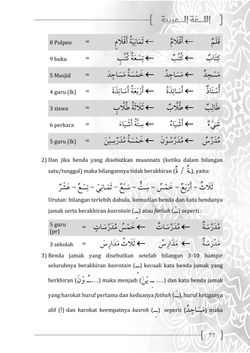 اللغة العربية
8 Pulpen = قَلَمٌ ← أَقْلَامٌ ← ثَمَانِيَةُ أَقْلَامٍ
9 buku = كِتَابٌ ← كُتُبٌ ← تِسْعَةُ كُتُبٍ
5 Masjid = مَسْجِدٌ ← مَسَاجِدُ ← خَمْسَةُ مَسَاجِدَ
4 guru (lk) = أُسْتَاذٌ ← أَسَاتِذَةٌ ← أَرْبَعَةُ أَسَاتِذَةٍ
3 siswa = طَالِبٌ ← طُلَّابٌ ← ثَلَاثَةُ طُلَّابٍ
6 perkara = شَيْءٌ ← أَشْيَاءُ ← سِتَّةُ أَشْيَاءَ
5 guru (lk) = مُدَرِّسٌ ← مُدَرِّسُوْنَ ← خَمْسَةُ مُدَرِّسِيْنَ
2) Dan jika benda yang disebutkan muannats (ketika dalam bilangan
satu/tunggal) maka bilangannya tidak berakhiran (ة / ـة), yaitu:
ثَلَاثُ – أَرْبَعُ – خَمْسُ – سِتُّ – سَبْعُ – ثَمَانِيْ – تِسْعُ – عَشْرُ
Urutan: bilangan terlebih dahulu, kemudian benda dan kata bendanya
jamak serta berakhiran kasrotain (ــٍ) atau fathah (ــَ) seperti :
5 guru (pr) = مُدَرِّسَةٌ ← مُدَرِّسَاتٌ ← خَمْسُ مُدَرِّسَاتٍ
3 sekolah = مَدْرَسَةٌ ← مَدَارِسُ ← ثَلَاثُ مَدَارِسَ
3) Benda jamak yang disebutkan setelah bilangan 3-10 hampir
seluruhnya berakhiran kasrotain (ــٍ) kecuali kata benda jamak yang
berkhiran (ـــُ وْنَ) maka menjadi (ـــِ يْنَ) dan kata benda jamak
yang harokat huruf pertama dan keduanya fathah (ــَ), huruf ketiganya
alif (ا) dan harokat keempatnya kasroh (ــِ) seperti (مَسَاجِدُ)